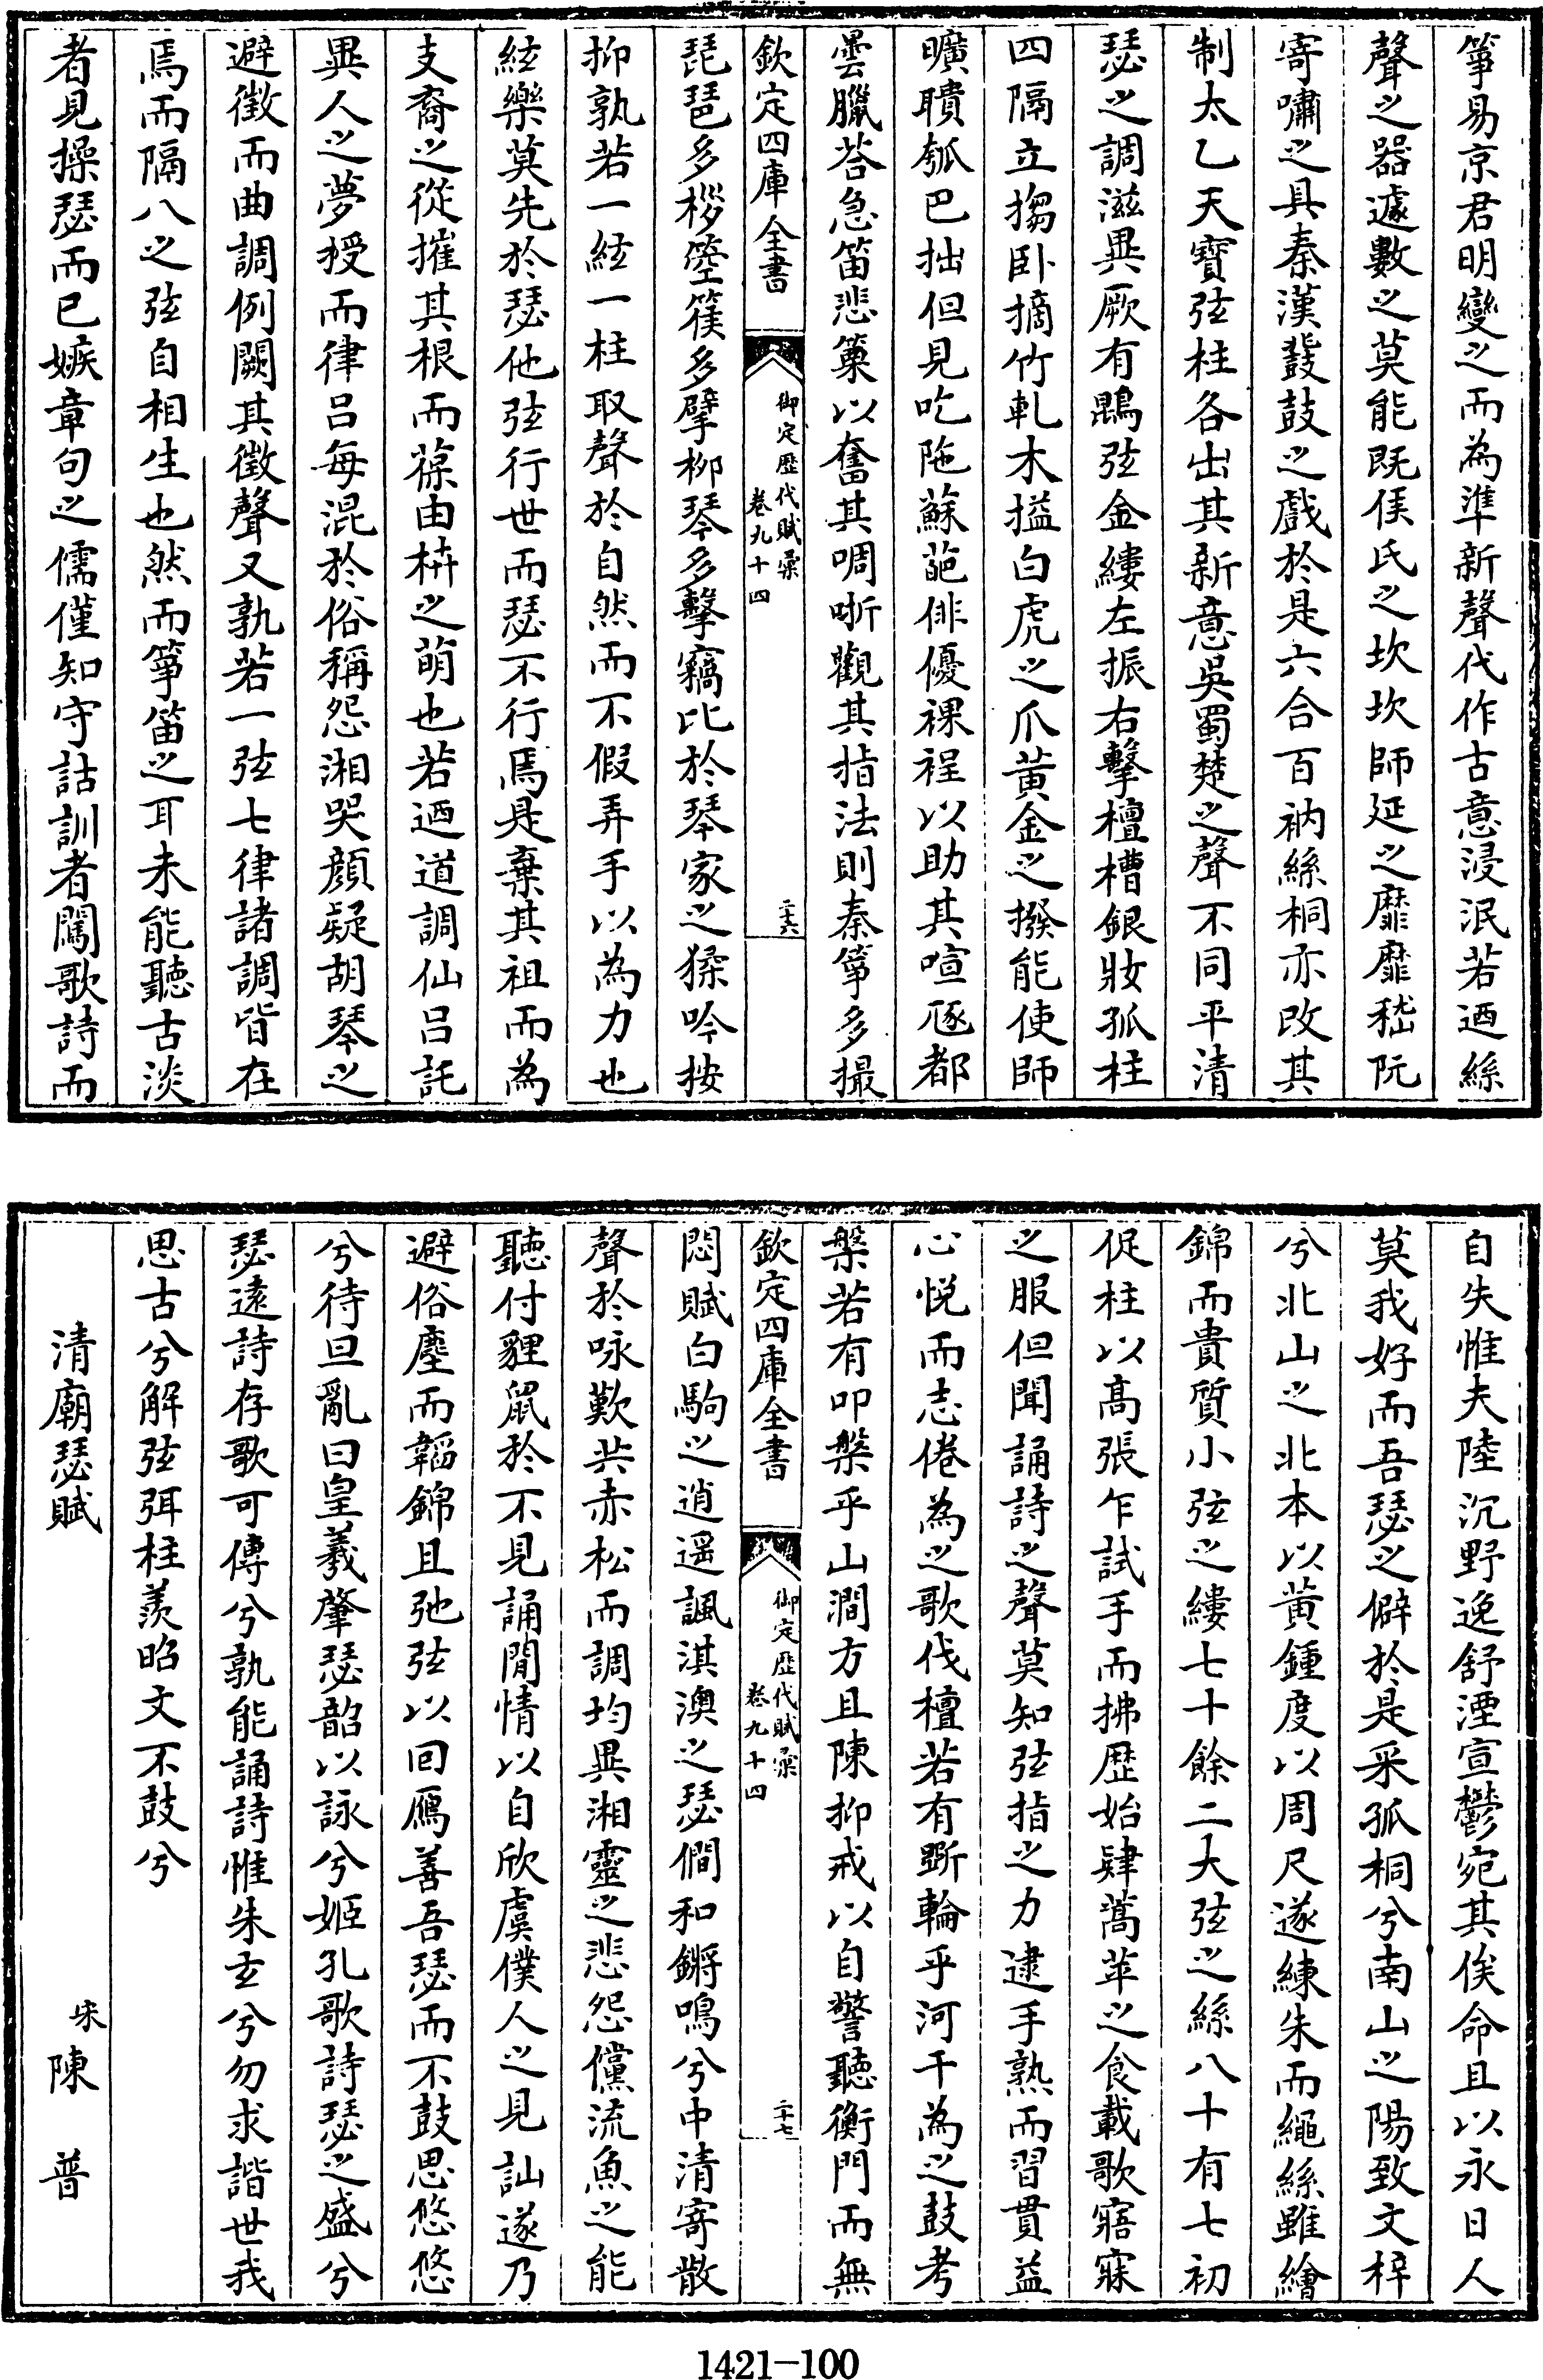 箏易京君明變之而為準新聲代作古意浸泯若迺絲
聲之器遽數之莫能既侯氏之坎坎師延之靡靡嵇阮
寄嘯之具秦漢鼗鼓之戲於是六合百衲絲桐亦改其
制太乙天寳弦柱各出其新意吳蜀楚之聲不同平清
瑟之調滋異厥有鵾弦金縷左振右擊檀槽銀妝孤柱
四隔立搊卧擿竹軋木搤白虎之爪黄金之撥能使師
曠聵瓠巴拙但見吃陁蘇葩俳優裸裎以助其喧豗都
曇臘荅急笛悲篥以奮其啁哳觀其指法則秦箏多撮
欽定四庫全書
御定歴代賦彙
卷九十四
二十六
琵琶多桚箜篌多擘栁琴多擊竊比於琴家之猱吟按
抑孰若一絃一柱取聲於自然而不假弄手以為力也
絃樂莫先於瑟他弦行世而瑟不行焉是棄其祖而為
支裔之從摧其根而葆由枿之萌也若迺道調仙吕託
異人之夢授而律吕每混於俗稱怨湘哭顔疑胡琴之
避徵而曲調例闕其徵聲又孰若一弦七律諸調皆在
焉而隔八之弦自相生也然而箏笛之耳未能聽古淡
者見操瑟而已嫉章句之儒僅知守詁訓者聞歌詩而
自失惟夫陸沉野逸舒湮宣鬱宛其俟命且以永日人
莫我好而吾瑟之僻於是采孤桐兮南山之陽致文梓
兮北山之北本以黄鍾度以周尺遂練朱而繩絲雖繪
錦而貴質小弦之縷七十餘二大弦之絲八十有七初
促柱以髙張乍試手而拂歴始肄蒿苹之食載歌寤寐
之服但聞誦詩之聲莫知弦指之力逮手熟而習貫益
心悦而志倦為之歌伐檀若有斲輪乎河干為之鼓考
槃若有叩槃乎山澗方且陳抑戒以自警聽衡門而無
欽定四庫全書
御定歴代賦彙
卷九十四
二十七
悶賦白駒之逍遥諷淇澳之瑟僩和鏘鳴兮中清寄散
聲於咏歎共赤松而調均異湘靈之悲怨儻流魚之能
聽付貍鼠於不見誦閒情以自欣虞僕人之見訕遂乃
避俗塵而韜錦且弛弦以回鴈善吾瑟而不鼓思悠悠
兮待旦亂曰皇羲肇瑟韶以詠兮姬孔歌詩瑟之盛兮
瑟逺詩存歌可傳兮孰能誦詩惟朱玄兮勿求諧世我
思古兮解弦弭柱羨昭文不鼓兮
清廟瑟賦 宋陳普
1421-100